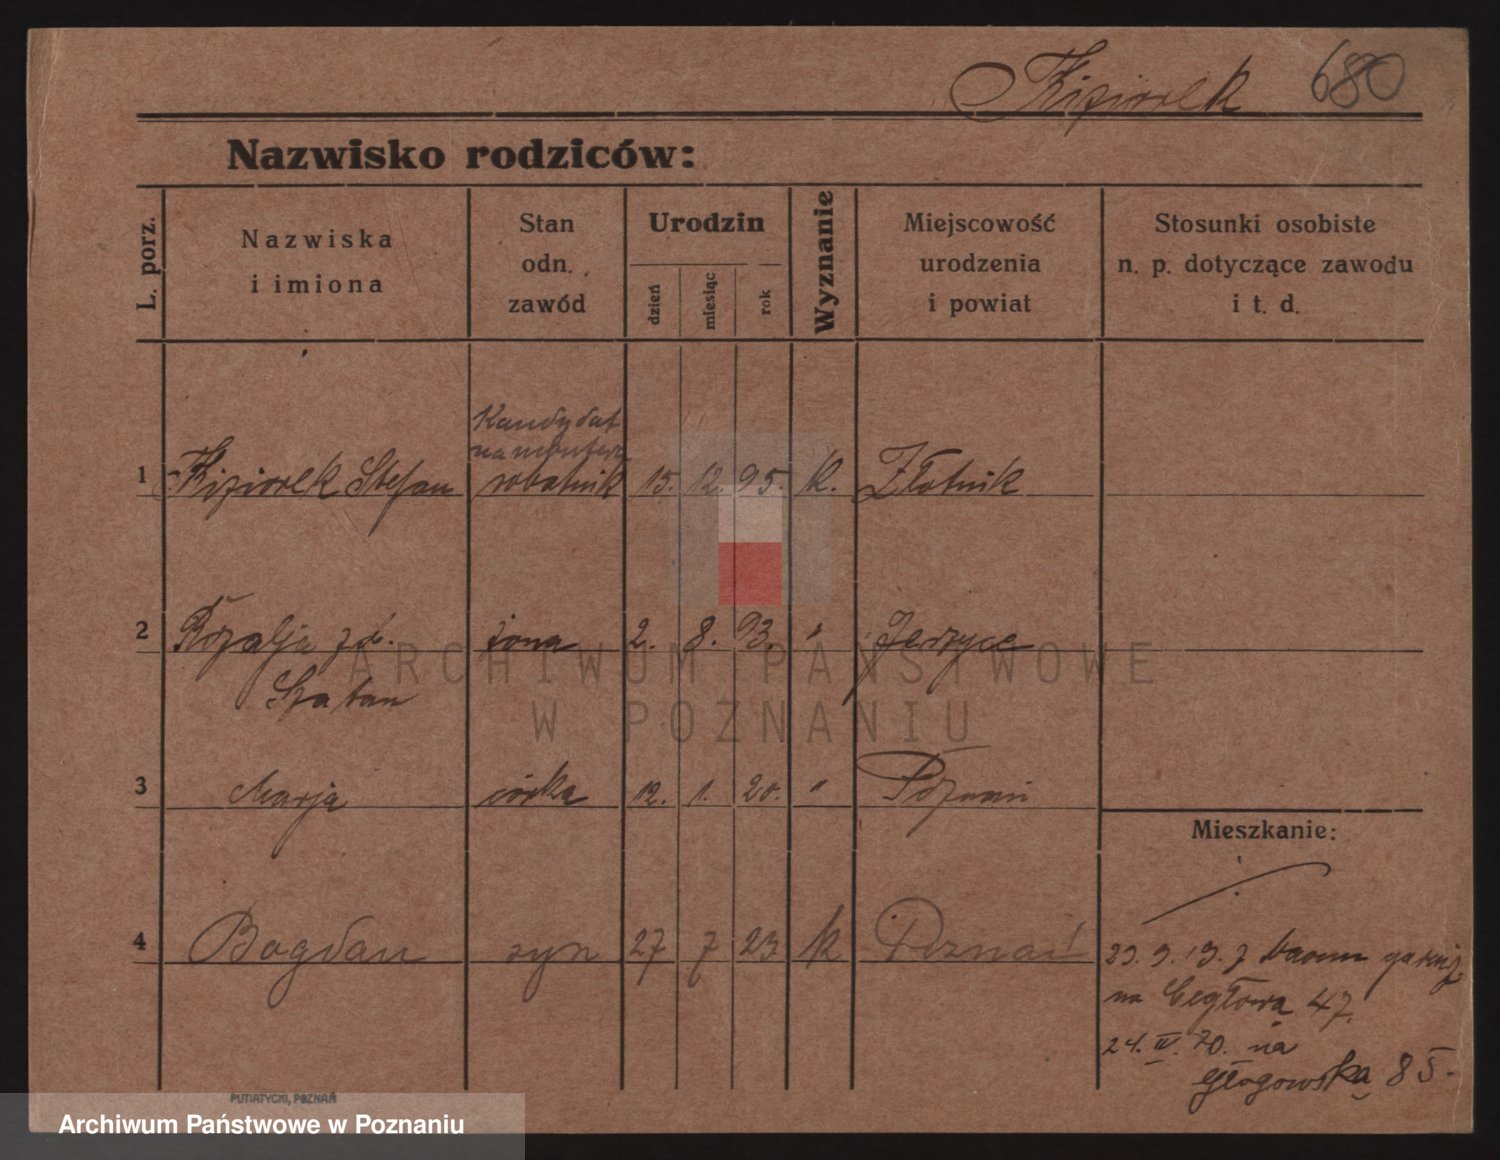 Kiziorek 680
Nazwisko rodziców:
L. porz.
Nazwiska
i imiona
Stan
odn.
zawód
Urodzin
dzień
miesiąc
rok
Wyznanie
Miejscowość
urodzenia
i powiat
Stosunki osobiste
n. p. dotyczące zawodu
i t. d.
Kandydat
na montera
1 Kiziorek Stefan robotnik 15. 12. 95. k. Złotnik
2 Rozalja zd. żona 2. 8. 93. " Jerzyce
Szatan
3 Marja córka 12. 1. 20. " Poznań
Mieszkanie:
4 Bogdan syn 27 7 23 k Poznań
23. 9. 19. z
na Cegłową 47.
24. IV. 20. na
Głogowską 85.
PUTIATYCKI, POZNAŃ
ARCHIWUM PAŃSTWOWE
W POZNANIU
Archiwum Państwowe w Poznaniu